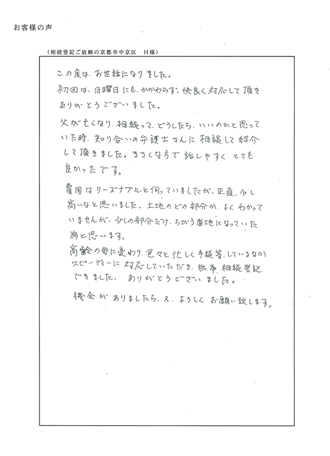 お客様の声
(相続登記ご依頼の京都市中京区　H様)
この度は、お世話になりました。
初回は、日曜日にも、かかわらず、快良く対応して頂き
ありがとうございました。
父が亡くなり、相続って、どうしたら、いいのかと思って
いた時、知り合いの弁護士さんに相談して紹介
して頂きました。きさくな方で話しやすく とても
良かったです。
費用はリーズナブルと伺っていましたが、正直、少し
高いなと思いました。土地のどの部分か、よくわかって
いませんが、少しの部分だけ、ちがう番地になっていた
為と思います。
高齢の母に変わり 色々と忙しく手続等、しているなか
スピーディーに 対応していただき、無事、相続登記
できました。ありがとうございました。
機会がありましたら、又、よろしく お願い致します。